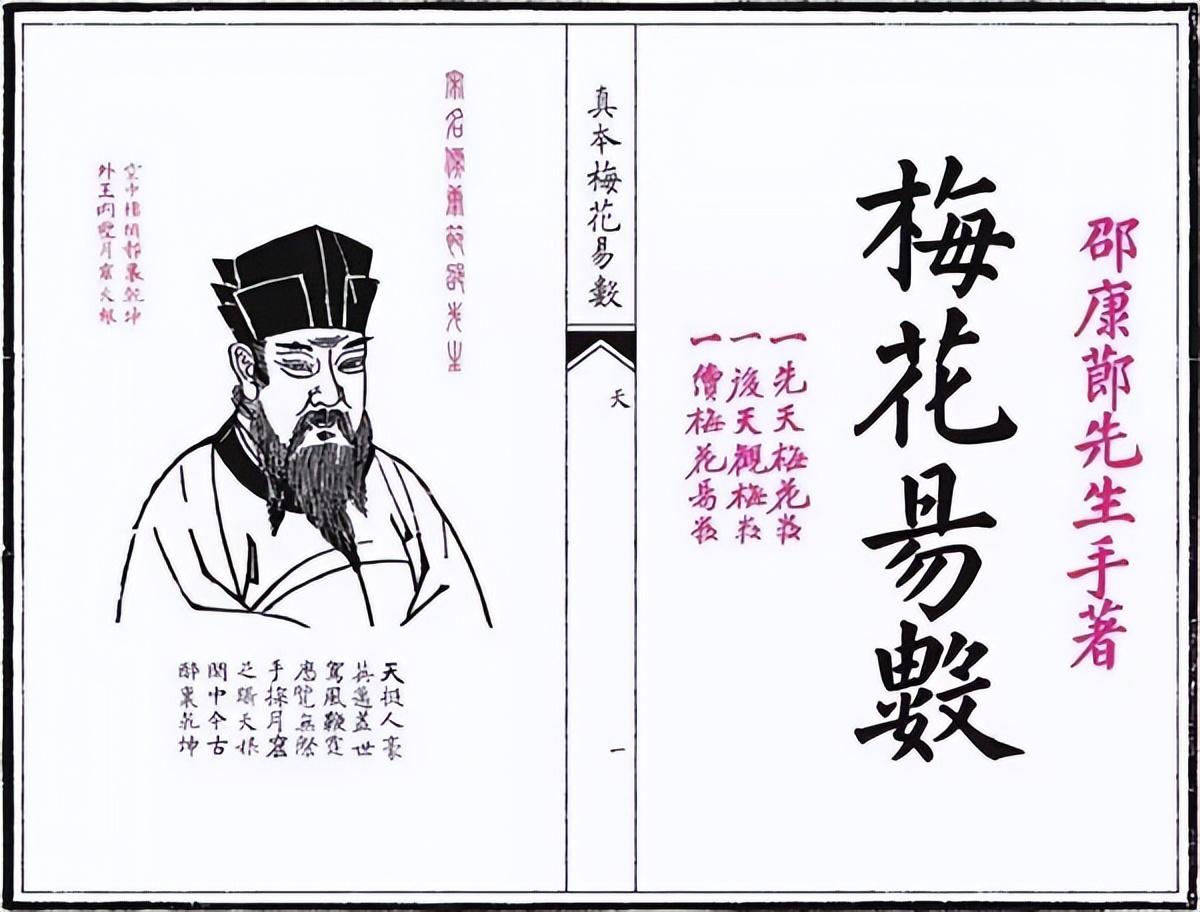 邵康節先生手著
梅花易數
一先天梅花数
一後天觀梅数
一價梅花易数
真本梅花易數
天
一
宋名儒康節邵先生
空中樓閣都裏乾坤
外王内聖月窟天根
天挺人豪
英邁蓋世
駕風鞭霆
歷覽無際
手探月窟
足躡天根
閑中今古
醉裏乾坤